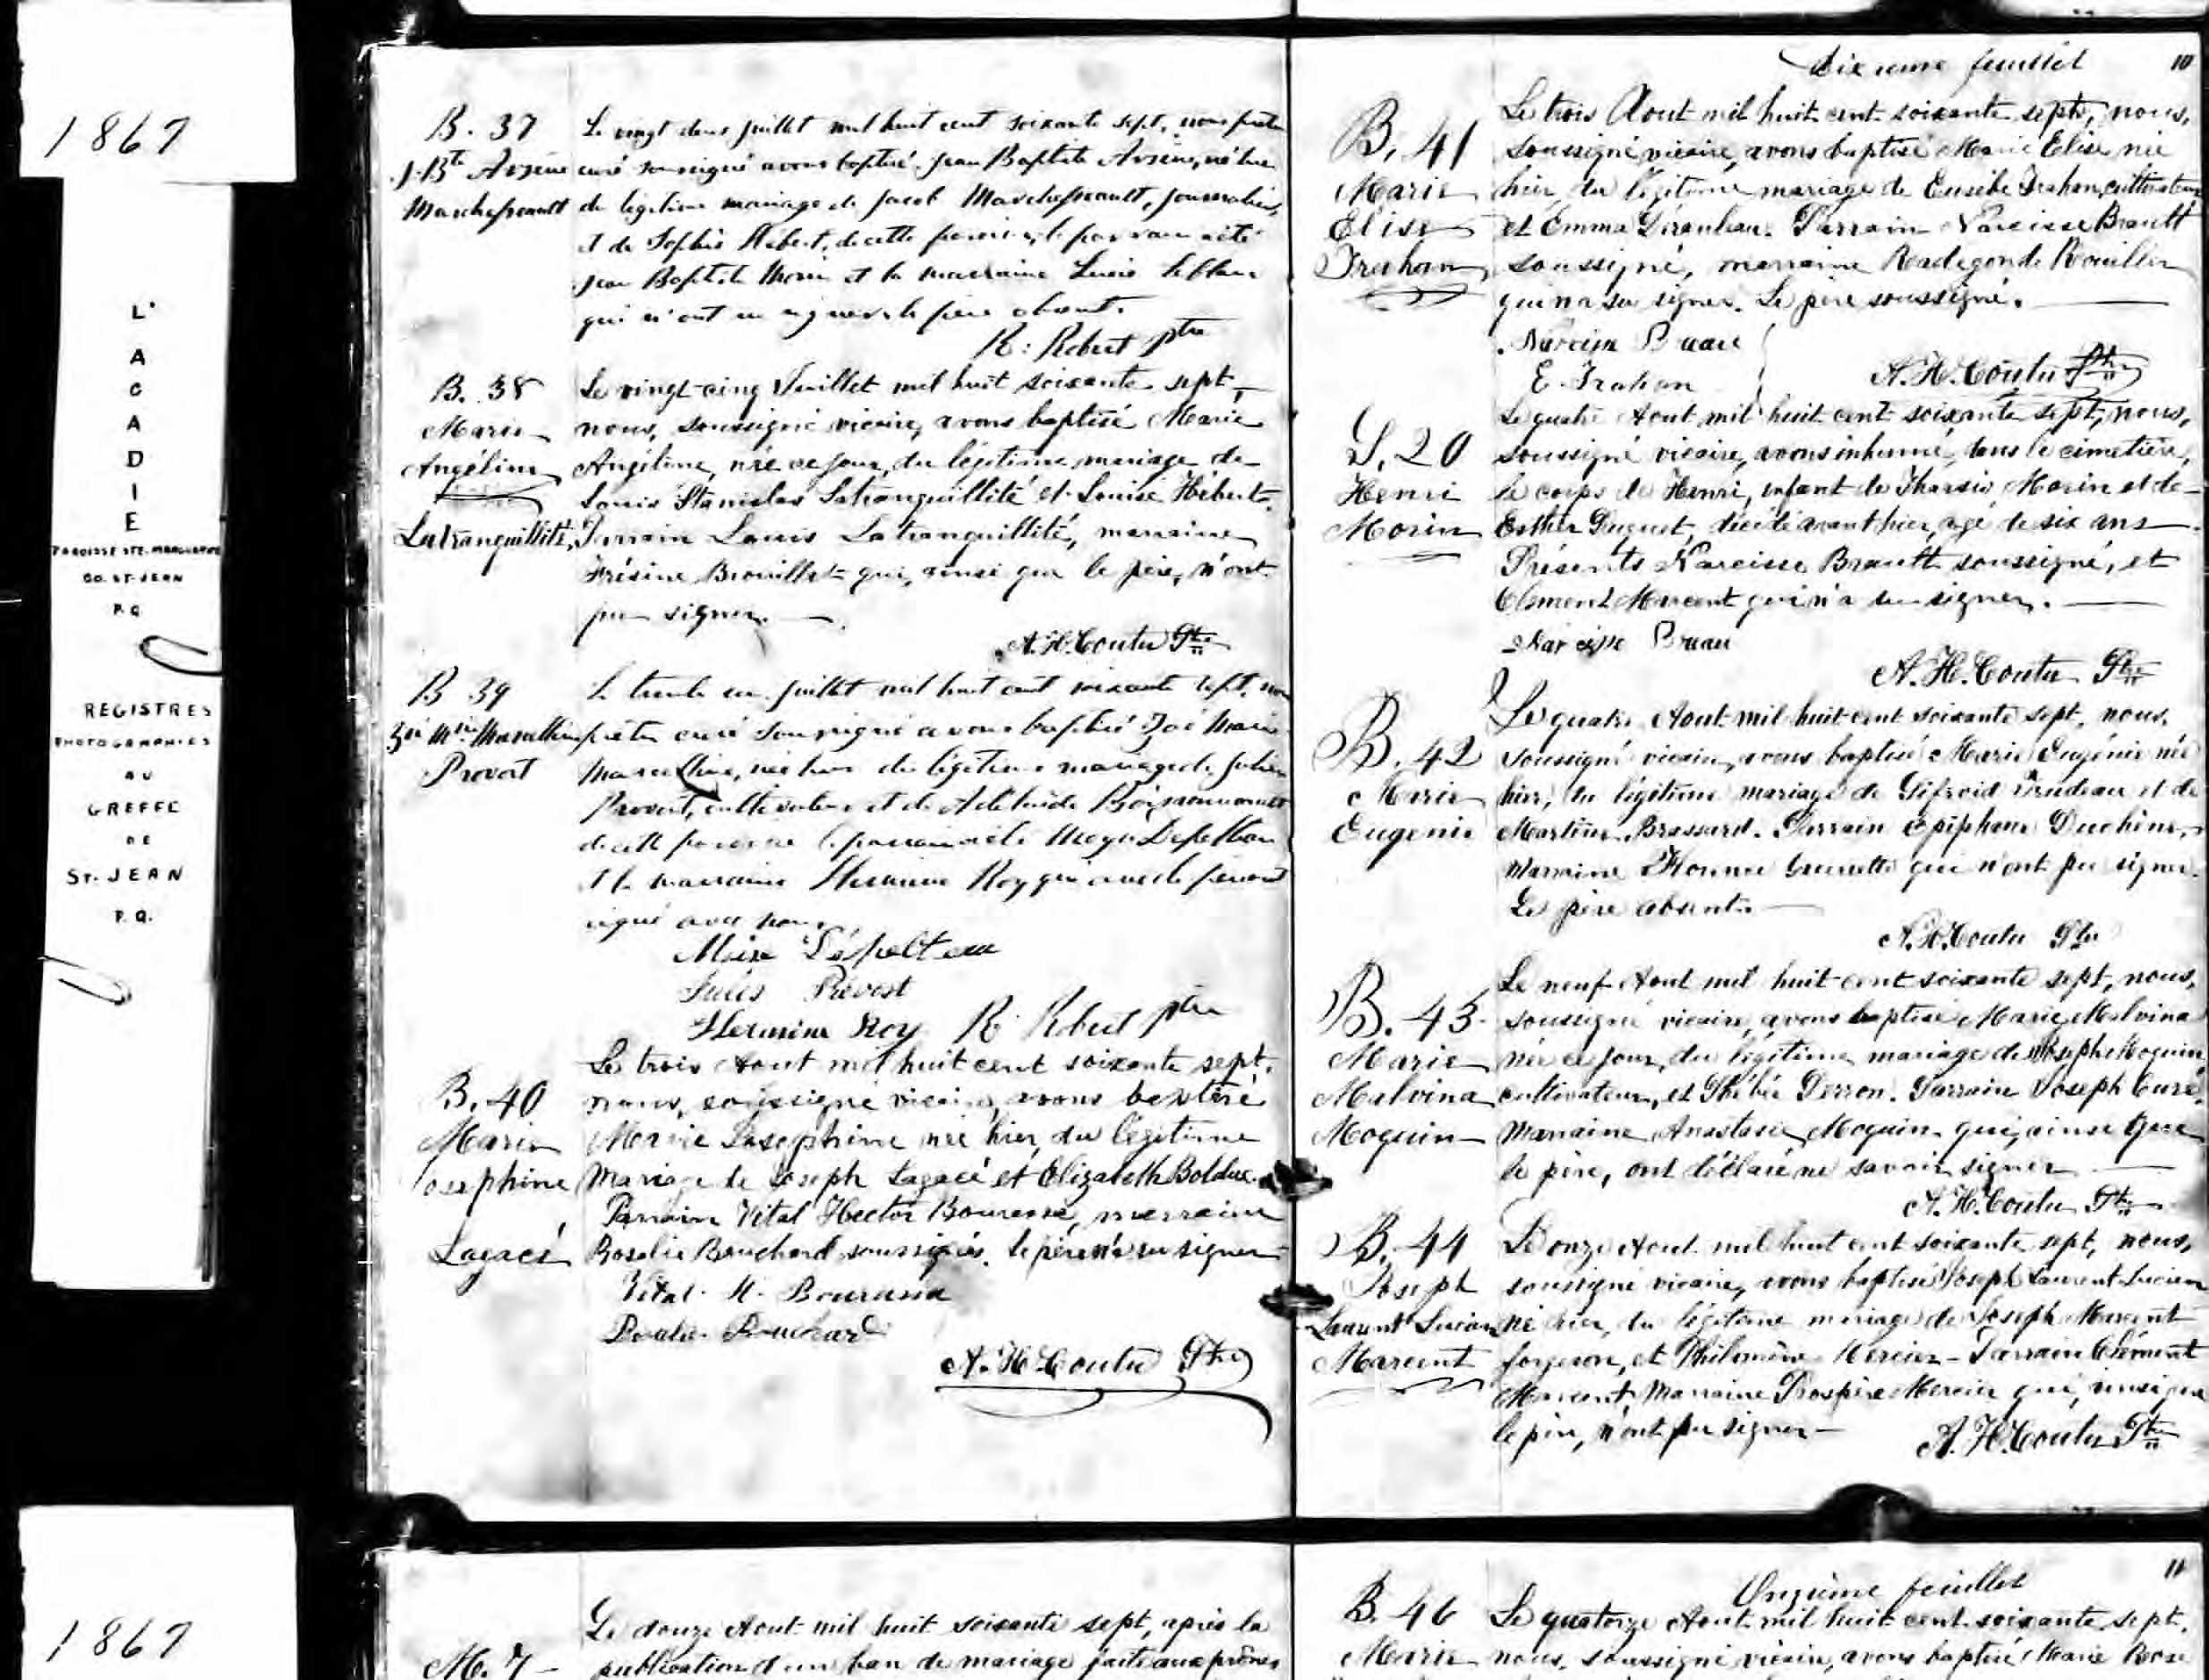 1867
L'
A
C
A
D
I
E
PAROISSE STE. MARGUERITE
CO. ST-JEAN
P.Q.
REGISTRES
PHOTOGRAPHIES
AU
GREFFE
DE
ST. JEAN
P.Q.
1867
B. 37
J. Bte Arsène
Marchesseault
Le vingt deux juillet mil huit cent soixante sept, nous prêtre
curé soussigné avons baptisé Jean Baptiste Arsène, né hier
du légitime mariage de Jacob Marchesseault, journalier,
et de Sophie Hébert, de cette paroisse, le parrain a été
Jean Baptiste Morin et la marraine Lucie Leblanc
qui n'ont su signer, le père absent.
R. Robert ptre
B. 38
Marie
Angéline
Latranquillité
Le vingt-cinq Juillet mil huit soixante sept,
nous, soussigné vicaire, avons baptisé Marie
Angéline, née ce jour, du légitime mariage de
Louis Stanislas Latranquillité et Louise Hébert.
Parrain Louis Latranquillité, marraine
Brouillet qui, ainsi que le père, n'ont
pu signer.
A. H. Coutu Ptre
B 39
Zoé Mie Marcelline
Provost
Le trente un juillet mil huit cent soixante sept, nous
prêtre curé soussigné avons baptisé Zoé Marie
Marcelline, née hier du légitime mariage de
Provost, cultivateur et de Adélaïde
de cette paroisse le parrain a été
et la marraine Hermine Roy qui avec le père ont
signé avec nous.
Provost
Hermine Roy R. Robert ptre
B. 40
Marie
Josephine
Lagacé
Le trois Aout mil huit cent soixante sept,
nous, soussigné vicaire, avons baptisé
Marie Josephine née hier, du légitime
Mariage de Joseph Lagacé et Elizabeth Bolduc.
Parrain Vital Hector Bourassa, marraine
Rosalie Bouchard soussignés. le père n'a su signer
Vital. H. Bourassa
Rosalie Bouchard
A. H. Coutu Ptre
Dixieme feuillet 10
B. 41
Marie
Elise
Trahan
Le trois Aout mil huit cent soixante sept, nous,
soussigné vicaire, avons baptisé Marie Elise née
hier, du légitime mariage de Eusèbe Trahan, cultivateur
et Emma. Parrain Narcisse Brault
soussigné, marraine Radegonde
qui n'a su signer. Le père soussigné.
Narcisse
E. Trahan
A. H. Coutu Ptre
S. 20
Henri
Morin
Le quatre Aout mil huit cent soixante sept, nous,
soussigné vicaire, avons inhumé, dans le cimetière,
le corps de Henri, enfant de Tharsis Morin et de
Esther Duquet, décédé avant hier, agé de six ans
Présents Narcisse Brault soussigné, et
Clément Marcent qui n'a su signer.
Narcisse
A. H. Coutu Ptre
B. 42
Marie
Eugenie
Le quatre Aout mil huit cent soixante sept, nous,
soussigné vicaire, avons baptisé Marie Eugénie née
hier, du légitime mariage de Gifroid Trudeau et de
Martine Brossard. Parrain Epiphane Duchène,
Marraine qui n'ont pu signer.
Le père absent.
A. H. Coutu Ptre
B. 43
Marie
Malvina
Moquin
Le neuf Aout mil huit cent soixante sept, nous,
soussigné vicaire, avons baptisé Marie Malvina
née ce jour, du légitime mariage de Joseph Moquin
cultivateur, et Phébée. Parrain Joseph
Marraine Anastasie Moquin qui, ainsi que
le père, ont déclaré ne savoir signer
A. H. Coutu Ptre
B. 44
Joseph
Laurent Lucien
Marcent
Le onze Aout mil huit cent soixante sept, nous,
soussigné vicaire, avons baptisé Joseph Laurent Lucien
né hier, du légitime mariage de Joseph Marcent
forgeron, et Philomène Mercier - Parrain Clément
Marcent, Marraine Prospère Mercier qui, ainsi que
le père, n'ont pu signer -
A. H. Coutu Ptre
M. 7
Le douze Aout mil huit soixante sept, après la
publication d'un ban de mariage faite aux prônes
Onzième feuillet 11
B. 46
Marie
Le quatorze Aout mil huit cent soixante sept,
nous, soussigné vicaire, avons baptisé Marie Rose